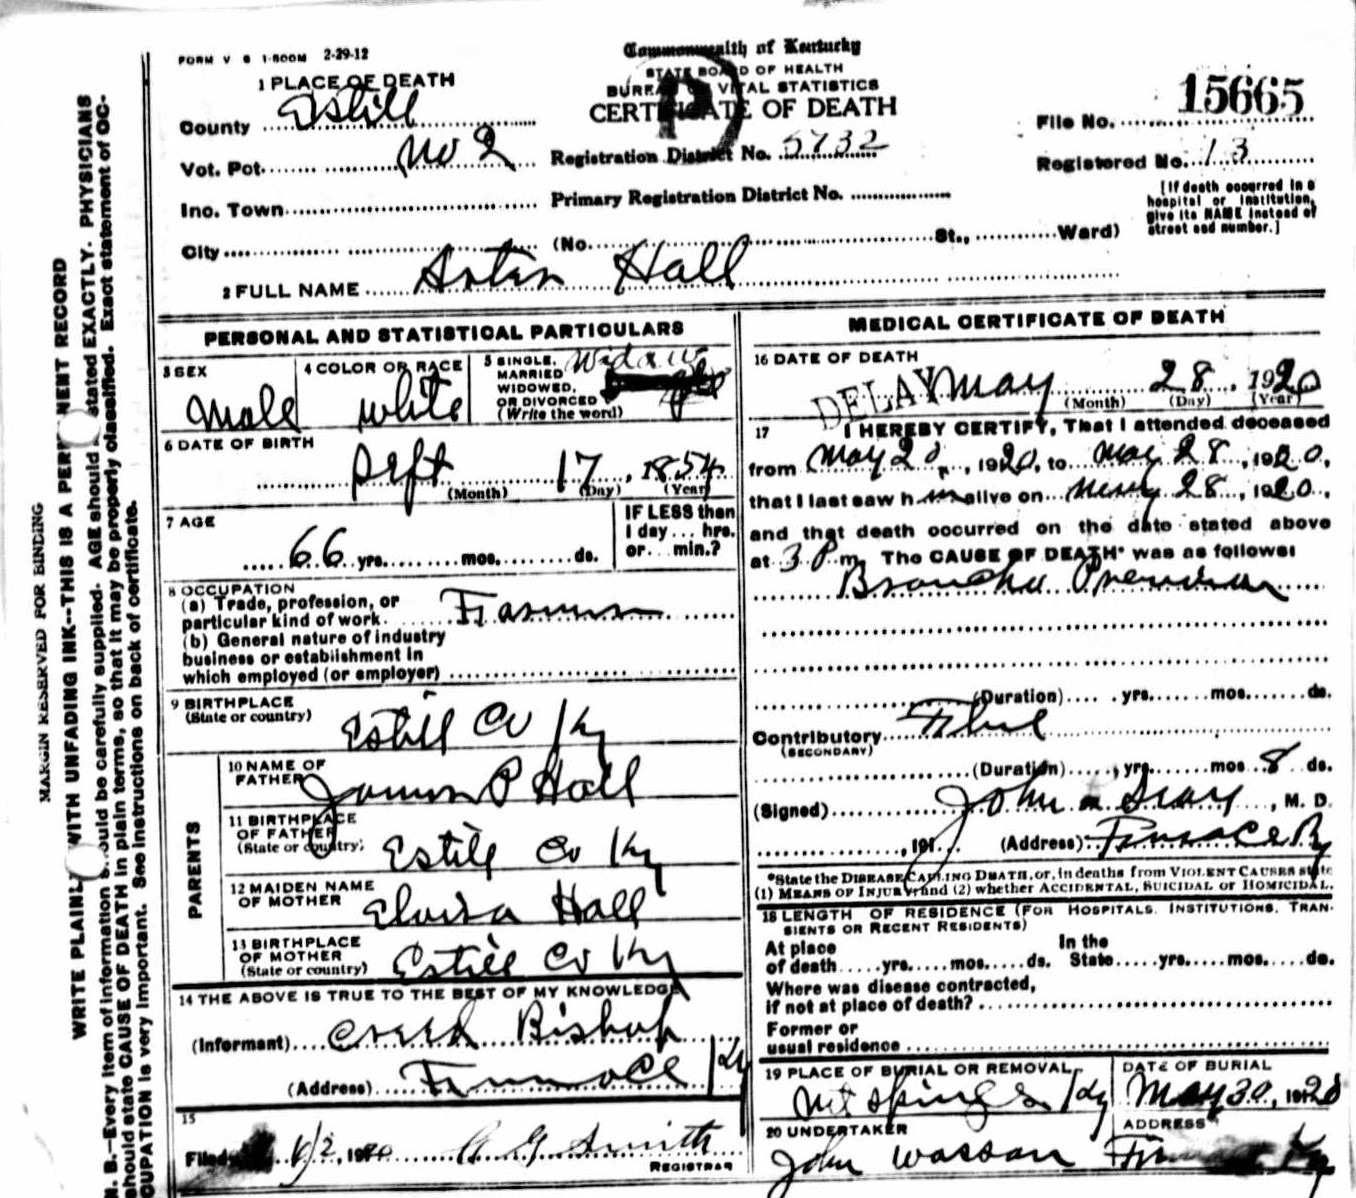 FORM V S 1-500M 2-29-12
Commonwealth of Kentucky
STATE BOARD OF HEALTH
BUREAU OF VITAL STATISTICS
CERTIFICATE OF DEATH
1 PLACE OF DEATH
County Estill
Vot. Pot. No 2
Inc. Town
City (No. St., Ward)
Registration District No. 5732
Primary Registration District No.
File No. 15665
Registered No. 13
[If death occurred in a
hospital or institution,
give its NAME instead of
street and number.]
2 FULL NAME Hall
PERSONAL AND STATISTICAL PARTICULARS
3 SEX
Male
4 COLOR OR RACE
White
5 SINGLE,
MARRIED
WIDOWED,
OR DIVORCED
(Write the word)
6 DATE OF BIRTH
Sept 17, 1854
(Month) (Day) (Year)
7 AGE
66 yrs. mos. ds.
IF LESS than
1 day... hrs.
or... min.?
8 OCCUPATION
(a) Trade, profession, or
particular kind of work Farmer
(b) General nature of industry
business or establishment in
which employed (or employer)
9 BIRTHPLACE
(State or country)
Estill Co Ky
PARENTS
10 NAME OF
FATHER
James P Hall
11 BIRTHPLACE
OF FATHER
(State or country)
Estill Co Ky
12 MAIDEN NAME
OF MOTHER
Hall
13 BIRTHPLACE
OF MOTHER
(State or country)
Estill Co Ky
14 THE ABOVE IS TRUE TO THE BEST OF MY KNOWLEDGE
(Informant) Creed Bishop
(Address) Furnace Ky
15
Filed 6/2, 1920 Smith
REGISTRAR
MEDICAL CERTIFICATE OF DEATH
16 DATE OF DEATH
DELAY May 28, 1920
(Month) (Day) (Year)
17 I HEREBY CERTIFY, That I attended deceased
from May 20, 1920, to May 28, 1920,
that I last saw him alive on May 28, 1920,
and that death occurred on the date stated above
at 3 P m. The CAUSE OF DEATH* was as follows:
Broncho Pneumonia
(Duration) yrs. mos. ds.
Contributory Flue
(SECONDARY)
(Duration) yrs. mos 8 ds.
(Signed) John, M. D.
, 191 (Address) Furnace Ky
*State the DISEASE CAUSING DEATH, or, in deaths from VIOLENT CAUSES state
(1) MEANS OF INJURY; and (2) whether ACCIDENTAL, SUICIDAL or HOMICIDAL.
18 LENGTH OF RESIDENCE (FOR HOSPITALS, INSTITUTIONS, TRAN-
SIENTS OR RECENT RESIDENTS)
At place
of death yrs. mos. ds.
In the
State yrs. mos. ds.
Where was disease contracted,
if not at place of death?
Former or
usual residence
19 PLACE OF BURIAL OR REMOVAL
Springs Ky
DATE OF BURIAL
May 30, 1920
20 UNDERTAKER
John Wasson
ADDRESS
Ky
MARGIN RESERVED FOR BINDING
WRITE PLAINLY WITH UNFADING INK--THIS IS A PERMANENT RECORD
N. B.--Every item of information should be carefully supplied. AGE should be stated EXACTLY. PHYSICIANS
should state CAUSE OF DEATH in plain terms, so that it may be properly classified. Exact statement of OC-
CUPATION is very important. See instructions on back of certificate.